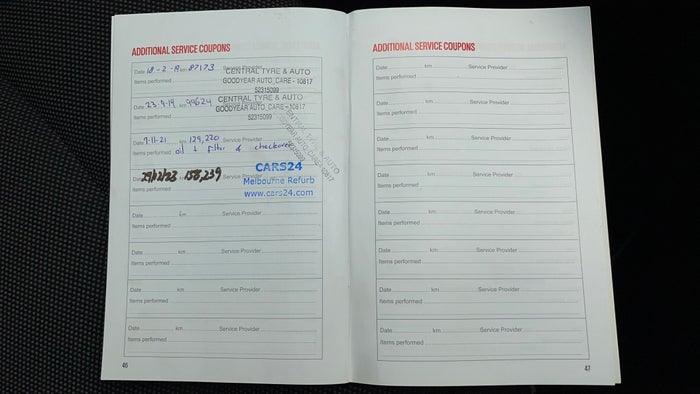 ADDITIONAL SERVICE COUPONS
Date 18-2-19 km 87173 Service Provider
CENTRAL TYRE & AUTO
Items performed
GOODYEAR AUTO CARE - 10817
52315099
Date 23.9.19 km 99624 CENTRAL TYRE & AUTO
Items performed GOODYEAR AUTO CARE - 10817
52315099
Date 7-11-21 km 129,220 Service Provider
Items performed oil & filter & checkover
CENTRAL TYRE & AUTO
GOODYEAR AUTO CARE - 10817
52315099
29/12/23 158,239
CARS24
Melbourne Refurb
www.cars24.com
Date km Service Provider
Items performed
Date km Service Provider
Items performed
Date km Service Provider
Items performed
Date km Service Provider
Items performed
46
ADDITIONAL SERVICE COUPONS
Date km Service Provider
Items performed
Date km Service Provider
Items performed
Date km Service Provider
Items performed
Date km Service Provider
Items performed
Date km Service Provider
Items performed
Date km Service Provider
Items performed
Date km Service Provider
Items performed
Date km Service Provider
Items performed
47